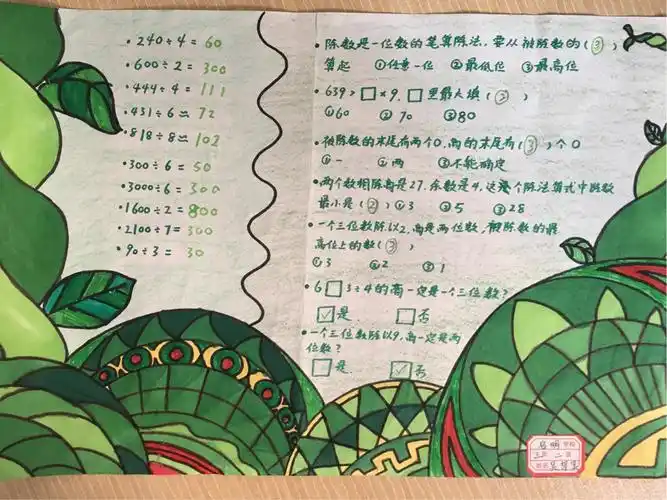 ·240÷4=60
·600÷2=300
·444÷4=111
·431÷6≈72
·818÷8≈102
·300÷6=50
·3000÷6=300
·1600÷2=800
·2100÷7=300
·90÷3=30
·除数是一位数的笔算除法，要从被除数的(③)
算起 ①任意一位 ②最低位 ③最高位
·639>□×9，□里最大填(②)
①60 ②70 ③80
·被除数的末尾有两个0，商的末尾有(③)个0
①一 ②两 ③不能确定
·两个数相除商是27，余数是4，这个除法算式中除数
最小是(②)①3 ②5 ③28
·一个三位数除以2，商是两位数，被除数的最
高位上的数(③)
①3 ②2 ③1
·6□3÷4的商一定是一个三位数？
☑是 □否
·一个三位数除以9，商一定是两
位数？
□是 ☑否
学校
三年二班
姓名